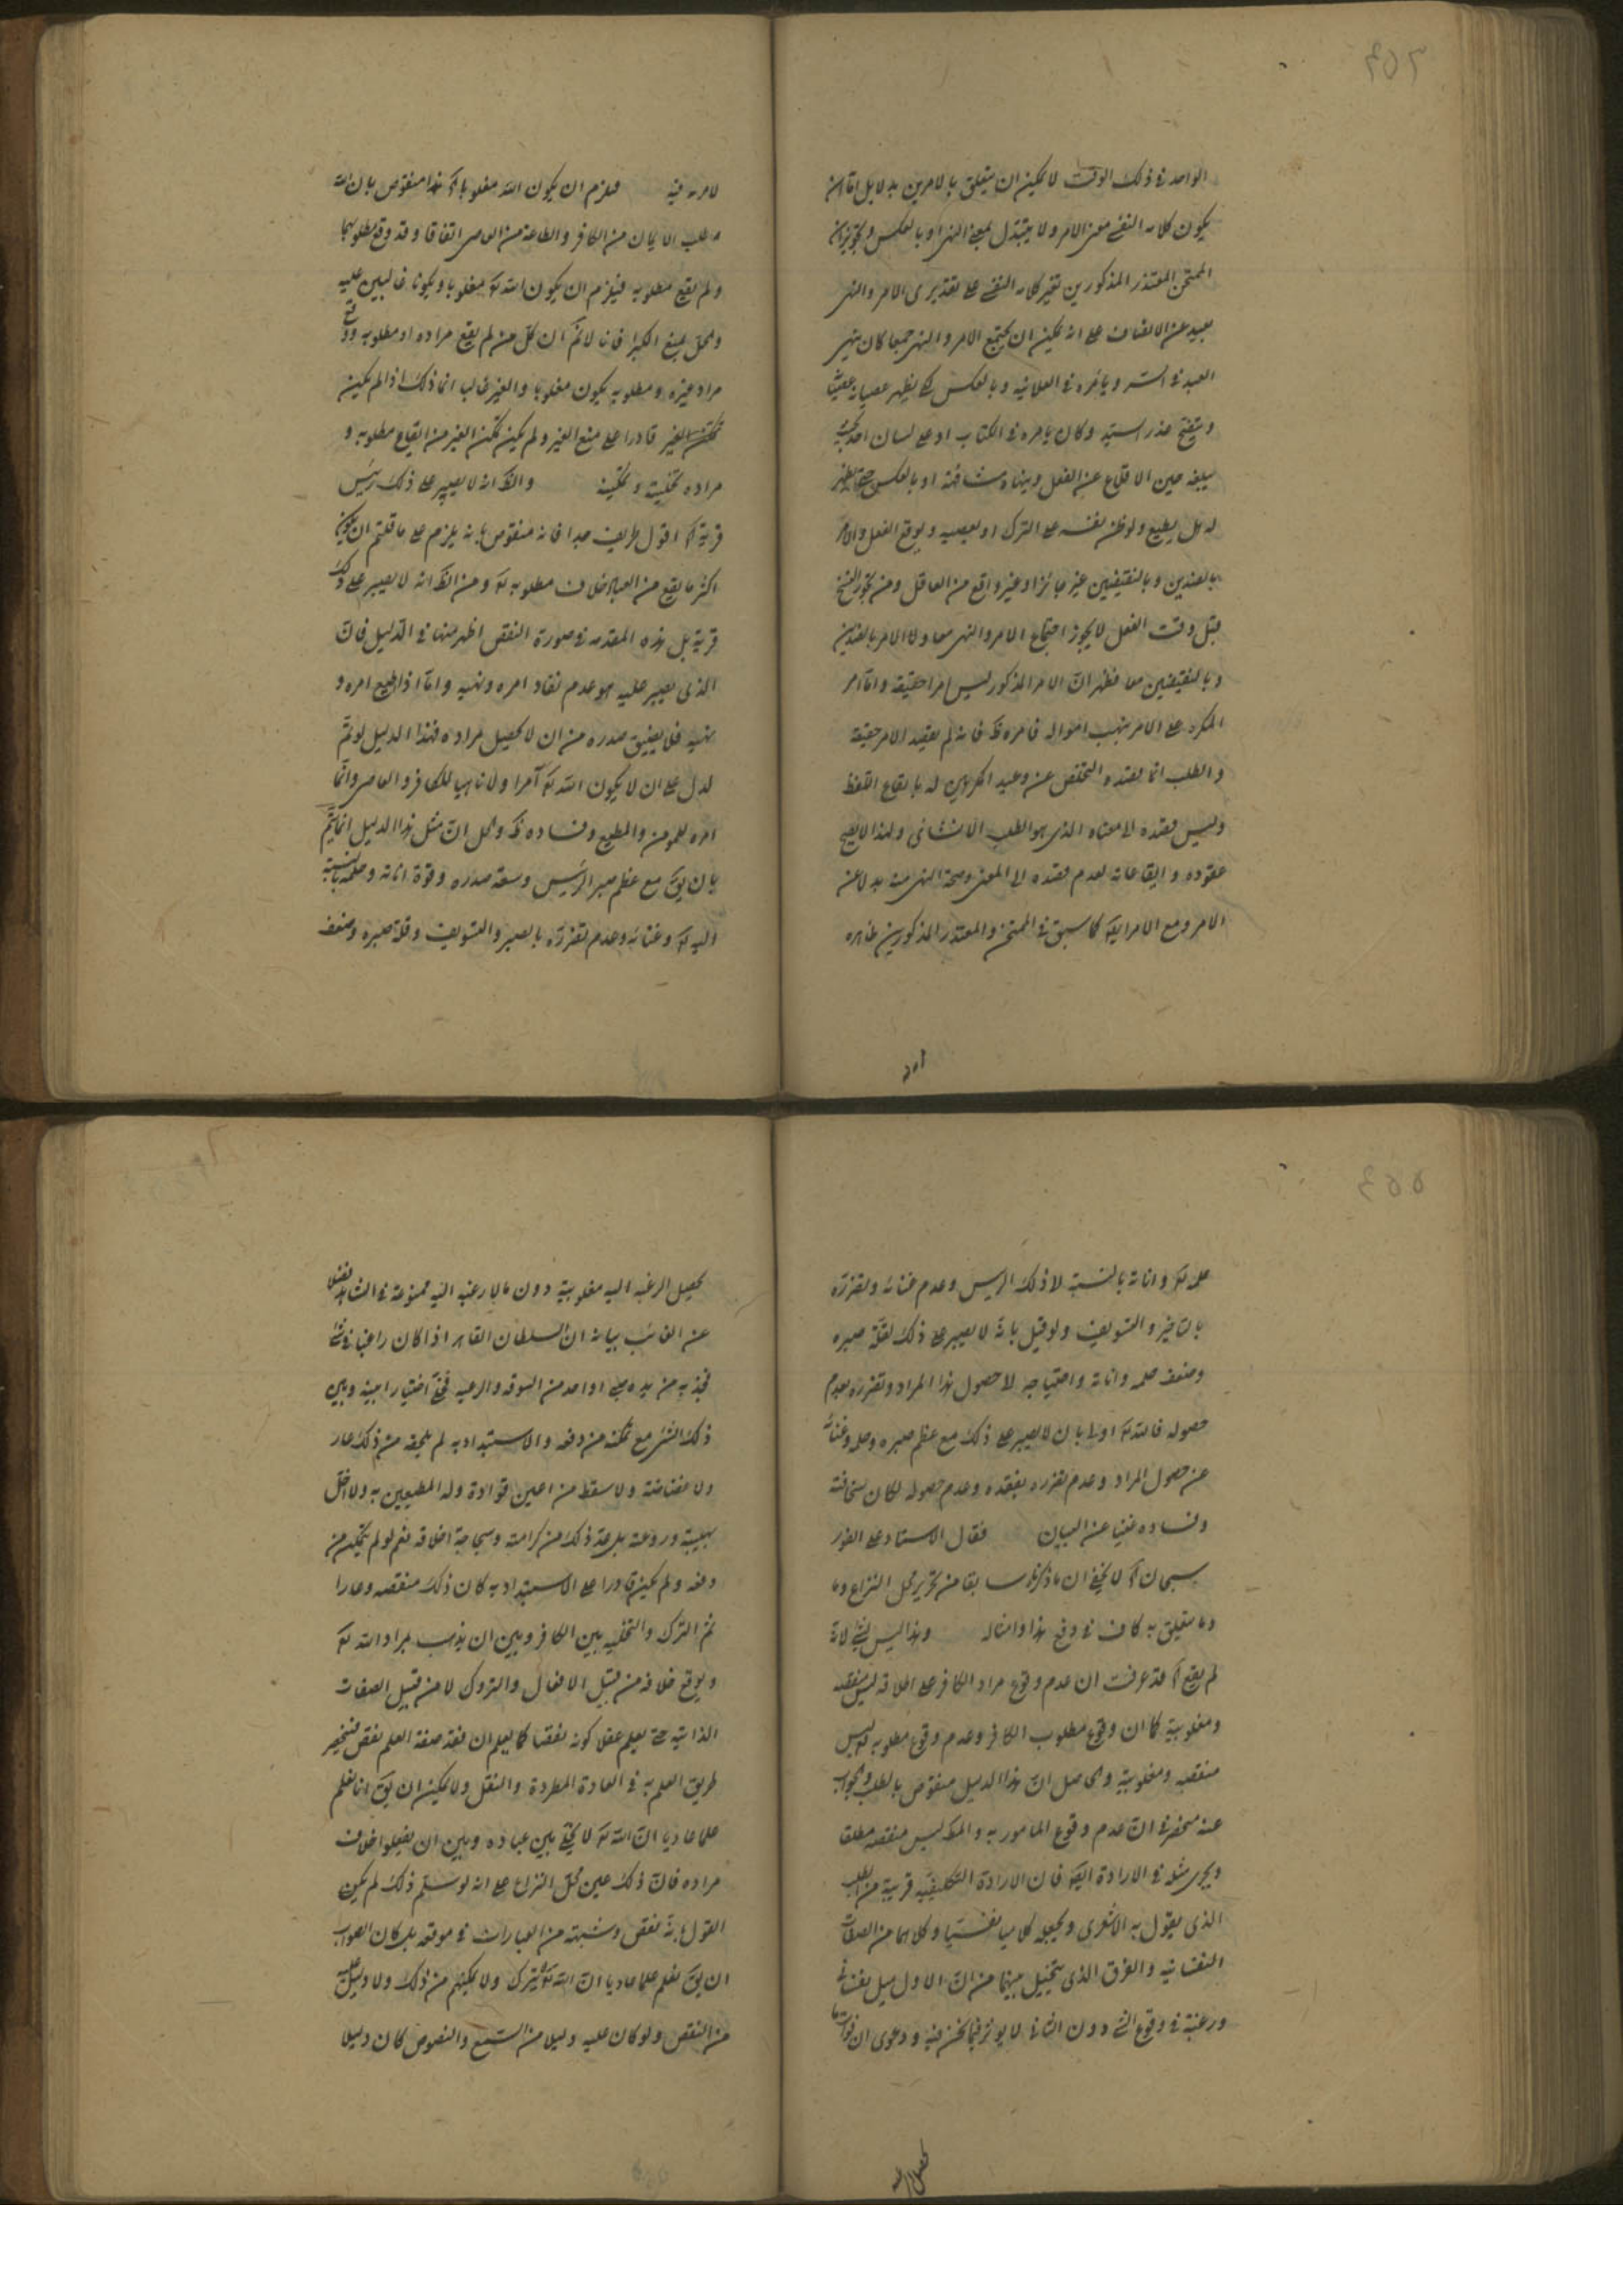 الواحد فى ذلك الوقت لا يمكن ان يتعلق بالامرين بدلا بل اما ان
يكون كلامه النفسى معنى الامر ولا يتبدل بمعنى النهى او بالعكس وتجويز ان
الممتحن المعتذر المذكورين تغير كلامه النفسى على تقديرى الامر والنهى
بعيد عن الانصاف على انه يمكن ان يجتمع الامر والنهى جميعا كان ينهى
العبد فى السر ويامره فى العلانية وبالعكس كى يظهر عصيانه
ويتضح عذر السيد وكان يامره فى الكتاب او على لسان احد
يبلغه حين الاقلاع عن الفعل وينهاه مشافهة او بالعكس حتى يظهر
له هل يطيع ولوطن نفسه على الترك او يعصيه ويوقع الفعل والامر
بالضدين وبالنقيضين غير جائز او غير واقع من العاقل ومن يجوز النسخ
قبل وقت الفعل لا يجوز اجتماع الامر والنهى معا ولا الامر بالضدين
وبالنقيضين معا فظهر ان الامر المذكور ليس امرا حقيقة واما امر
المكره على الامر بنهب امواله فامره ظ فانه لم يقصد الامر حقيقة
والطلب انما قصده التخلص عن وعيد المكرهين له بايقاع اللفظ
وليس قصده الا معناه الذى هو الطلب الانشائى ولهذا لا يصح
عقوده وايقاعاته لعدم قصده الى المعنى وصحة النهى منه بدلا عن
الامر ومع الامر ايضا كما سبق فى الممتحن والمعتذر المذكورين ظاهره
امره
لامره فيه فيلزم ان يكون الله مغلوبا اه هذا منقوض بان الله
طلب الايمان من الكافر والطاعة من العاصى اتفاقا وقد وقع مطلوبهما
ولم يقع مطلوبه فيلزم ان يكون الله تع مغلوبا ويكونا غالبين عليه
والحل بمنع الكبرا فانا لانم ان كل من لم يقع مراده او مطلوبه ووقع
مراد غيره ومطلوبه يكون مغلوبا والغير غالب انما ذلك اذا لم يكن
قادرا على منع الغير ولم يكن تمكن الغير من ايقاع مطلوبه و
مراده بتخليته وتمكينه والظ انه لا يصبر على ذلك رئيس
قرية اه اقول طريف جدا فانه منقوض بانه يلزم على ما قلتم ان يكون
اكثر ما يقع من العباد خلاف مطلوبه تع ومن الظ انه لا يصبر على ذلك
قرية بل هذه المقدمه فى صورة النقض اظهر منها فى الدليل فان
الذى يصبر عليه هو عدم نفاد امره ونهيه واما اذا اطيع امره و
نهيه فلا يضيق صدره من ان لا يحصل مراده فهذا الدليل لو تم
لدل على ان لا يكون الله تع آمرا ولا ناهيا للكافر والعاصى وانما
امره للمومن والمطيع وفساده ظ والحل ان مثل هذا الدليل انما يتم
بان يق مع عظم صبر الرئيس وسعة صدره وقوة اناته وحلمه بالنسبة
اليه تع وغنائه وعدم تضرره بالصبر والتسويف وقلة صبره وضعف
حلمه تع واناته بالنسبة لا ذلك الريس وعدم غنائه وتضرره
بالتاخير والتسويف ولو قيل بانه لا يصبر على ذلك لقلة صبره
وضعف حلمه واناته واحتياجه لا حصول هذا المراد وتضرره بعدم
حصوله فالله تع اولى بان لا يصبر على ذلك مع عظم صبره وحلمه وغنائه
عن حصول المراد وعدم تضرره بفقده وعدم حصوله لكان سخافته
وفساده مغنيا عن البيان فقال الاستاد على الفور
سبحان اه لا يخفى ان ما ذكرناه سابقا من تحرير محل النزاع وما
وما يتعلق به كاف فى دفع هذا وامثاله وهذا ليس بشئ لانه
لم يقع اه قد عرفت ان عدم وقوع مراد الكافر على اطلاقه ليس منقصة
ومغلوبية كما ان وقوع مطلوب الكافر وعدم وقوع مطلوبه تع ليس
منقصه ومغلوبية والحاصل ان هذا الدليل منقوض بالطلب والجواب
عنه منحصر فى ان عدم وقوع المامور به والمط ليس منقصه مطلقا
ويجرى مثله فى الارادة ايضا فان الارادة التكليفيه قريبة من الطلب
الذى يقول به الاشعرى ويجعله كلاميا نفسيا وكلاهما من الصفات
النفسانيه والفرق الذى يتخيل بينهما من ان الاول ميل نفسانى
ورغبة فى وقوع الشئ دون الثانى لا يوثر فيما نحن فيه ودعوى ان فوات ما
يحصل الرغبة
يحصل الرغبه اليه مغلوبية دون ما لا رغبه اليه ممنوعة فى الشاهد فضلا
عن الغائب بيانه ان السلطان القاهر اذا كان راغبا فى شئ
فجذبه من يده صبى او احد من السوقه والرعيه فخلى اختيارا بينه وبين
ذلك الشئ مع تمكنه من دفعه والاستبداد به لم يلحقه من ذلك عار
ولا غضاضة ولا سقط من اعين قواده وله المطيعين به ولا اخل
بهيبته وروعته بل عد ذلك من كرامته وسجاحة اخلاقه نعم لو لم يتمكن من
دفعه ولم يكن قادرا على الاستبداد به كان ذلك منقصه وعارا
ثم الترك والتخليه بين الكافر وبين ان يذهب بمراد الله تع
ويوقع خلافه من قبيل الافعال والتروك لا من قبيل الصفات
الذاتيه حتى يعلم عقلا كونه نقصا كما يعلم ان فقد صفة العلم نقص فينحصر
طريق العلم به فى العادة المطردة والنقل ولا يمكن ان يق انا نعلم
علما عاديا ان الله تع لا يخلى بين عباده وبين ان يفعلوا خلاف
مراده فان ذلك عين محل النزاع على انه لو سلم ذلك لم يكن
القول بانه نقص وشبهته من العبارات فى موقعه بل كان الصواب
ان يق نعلم علما عاديا ان الله تع لا يترك ولا يمكنهم من ذلك ولا دليل عليه
من النقص ولو كان عليه دليلا من السمع والنصوص كان دليلا